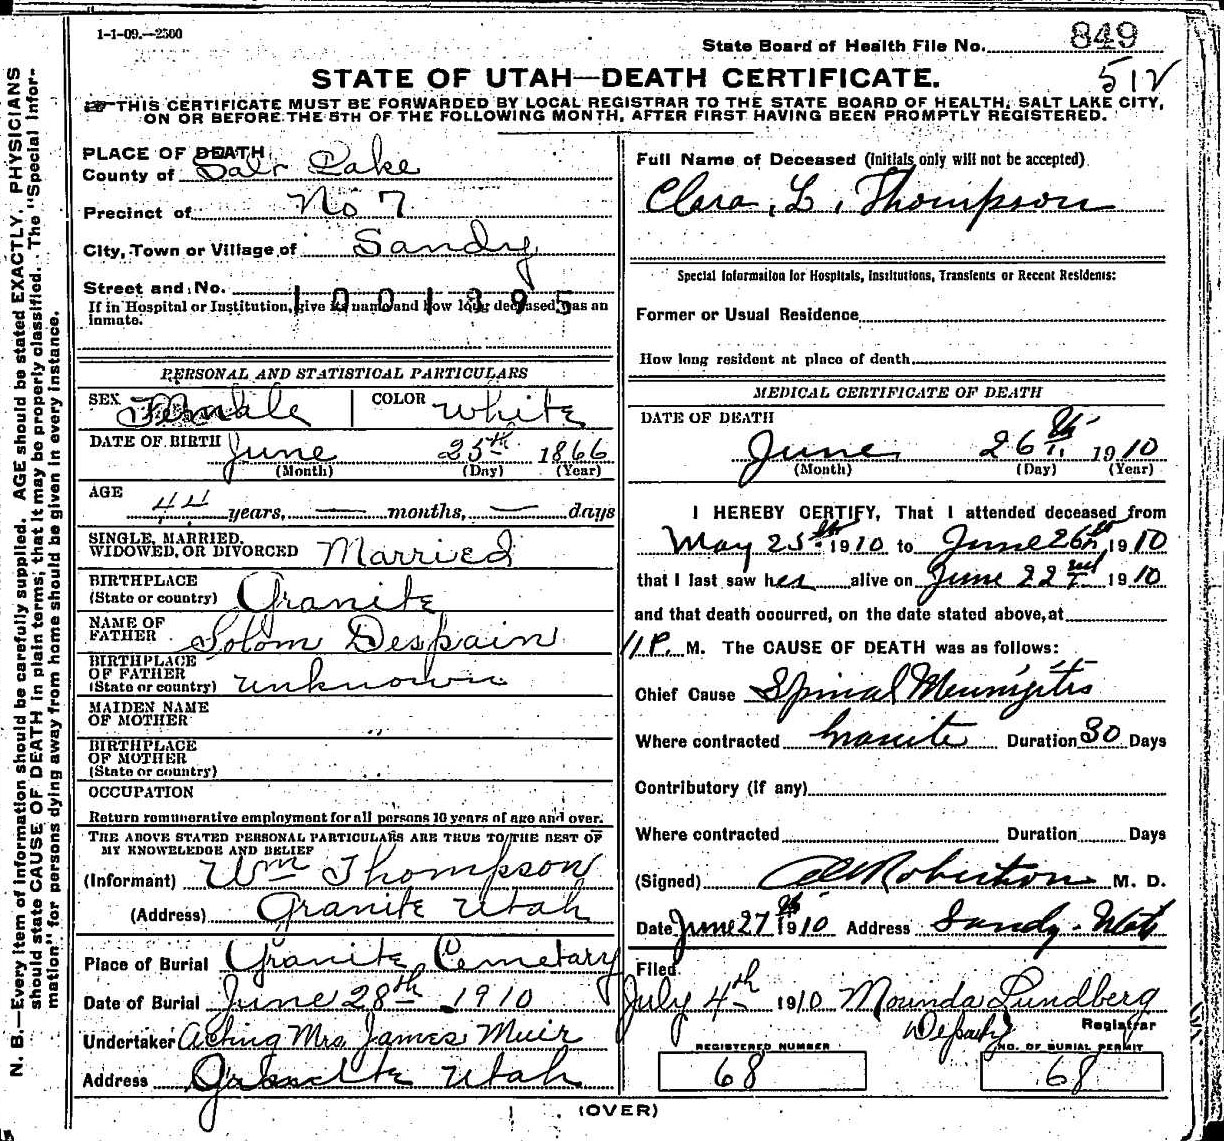 1-1-09.—2500
State Board of Health File No. 849
512
STATE OF UTAH—DEATH CERTIFICATE.
THIS CERTIFICATE MUST BE FORWARDED BY LOCAL REGISTRAR TO THE STATE BOARD OF HEALTH, SALT LAKE CITY,
ON OR BEFORE THE 5TH OF THE FOLLOWING MONTH, AFTER FIRST HAVING BEEN PROMPTLY REGISTERED.
N. B.—Every item of information should be carefully supplied. AGE should be stated EXACTLY. PHYSICIANS
should state CAUSE OF DEATH in plain terms, that it may be properly classified. The "Special Infor-
mation" for persons dying away from home should be given in every instance.
PLACE OF DEATH
County of Salt Lake
Precinct of No 7
City, Town or Village of Sandy
Street and No.
1001395
If in Hospital or Institution, give its name and how long deceased was an
inmate.
PERSONAL AND STATISTICAL PARTICULARS
SEX Female COLOR White
DATE OF BIRTH June 25th 1866
(Month) (Day) (Year)
AGE
44 years, — months, — days
SINGLE, MARRIED,
WIDOWED, OR DIVORCED Married
BIRTHPLACE
(State or country) Granite
NAME OF
FATHER Solom Despain
BIRTHPLACE
OF FATHER
(State or country) unknown
MAIDEN NAME
OF MOTHER "
BIRTHPLACE
OF MOTHER
(State or country) "
OCCUPATION
Return remunerative employment for all persons 10 years of age and over.
THE ABOVE STATED PERSONAL PARTICULARS ARE TRUE TO THE BEST OF
MY KNOWELEDGE AND BELIEF
(Informant) Wm Thompson
(Address) Granite Utah
Place of Burial Granite Cemetary
Date of Burial June 28th 1910
Undertaker Acting Mrs James Muir
Address Granite Utah
Full Name of Deceased (Initials only will not be accepted)
Clara, L, Thompson
Special Information for Hospitals, Institutions, Transients or Recent Residents:
Former or Usual Residence
How long resident at place of death
MEDICAL CERTIFICATE OF DEATH
DATE OF DEATH
June 26th 1910
(Month) (Day) (Year)
I HEREBY CERTIFY, That I attended deceased from
May 25th 1910 to June 26th 1910
that I last saw her alive on June 22nd 1910
and that death occurred, on the date stated above, at
11P. M. The CAUSE OF DEATH was as follows:
Chief Cause Spinal Meningitis
Where contracted Granite Duration 30 Days
Contributory (if any)
Where contracted Duration Days
(Signed) Robertson M. D.
Date June 27th 1910 Address Sandy - Utah
Filed
July 4th 1910 Mounda Lundberg
Deputy Registrar
REGISTERED NUMBER
68
NO. OF BURIAL PERMIT
68
(OVER)